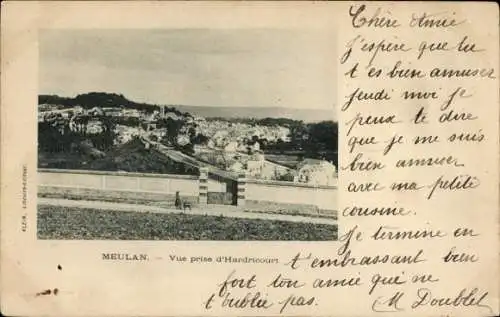 Chère Amie
J'espère que tu
t'es bien amuser
jeudi moi je
peux te dire
que je me suis
bien amuser
avec ma petite
cousine.
Je termine en
t'embrassant bien
fort ton amie qui ne
t'oublie pas.
M Doublet
MEULAN. — Vue prise d'Hardricourt